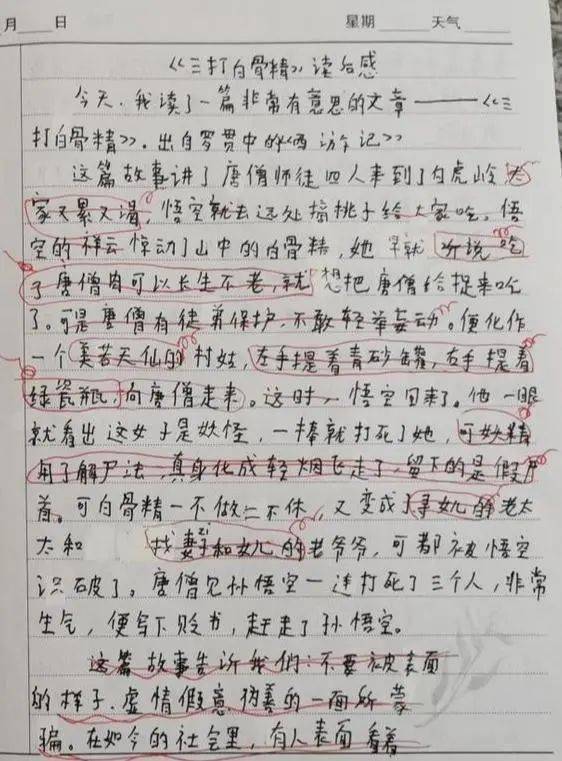 月 日 星期 天气
《三打白骨精》读后感
今天,我读了一篇非常有意思的文章——《三
打白骨精》。出自罗贯中的《西游记》
这篇故事讲了唐僧师徒四人来到了白虎岭 大
家又累又渴,悟空就去远处摘桃子给大家吃。悟
空的祥云惊动了山中的白骨精,她早就听说吃
了唐僧肉可以长生不老,就想把唐僧给捉来吃
了。可是唐僧有徒弟保护,不敢轻举妄动。便化作
一个美若天仙的村姑,左手提着青砂罐,右手提着
绿瓷瓶,向唐僧走来。这时,悟空回来了。他一眼
就看出这女子是妖怪,一棒就打死了她,可妖精
用了解尸法,真身化成轻烟飞走了,留下的是假尸
首。可白骨精一不做二不休,又变成了寻女儿的老太
太和 找妻子zi和女儿的老爷爷,可都被悟空
识破了。唐僧见孙悟空一连打死了三个人,非常
生气,便写下贬书,赶走了孙悟空。
这篇故事告诉我们:不要被表面
的样子、虚情假意 伪善的一面所蒙
骗。在如今的社会里,有人表面看着